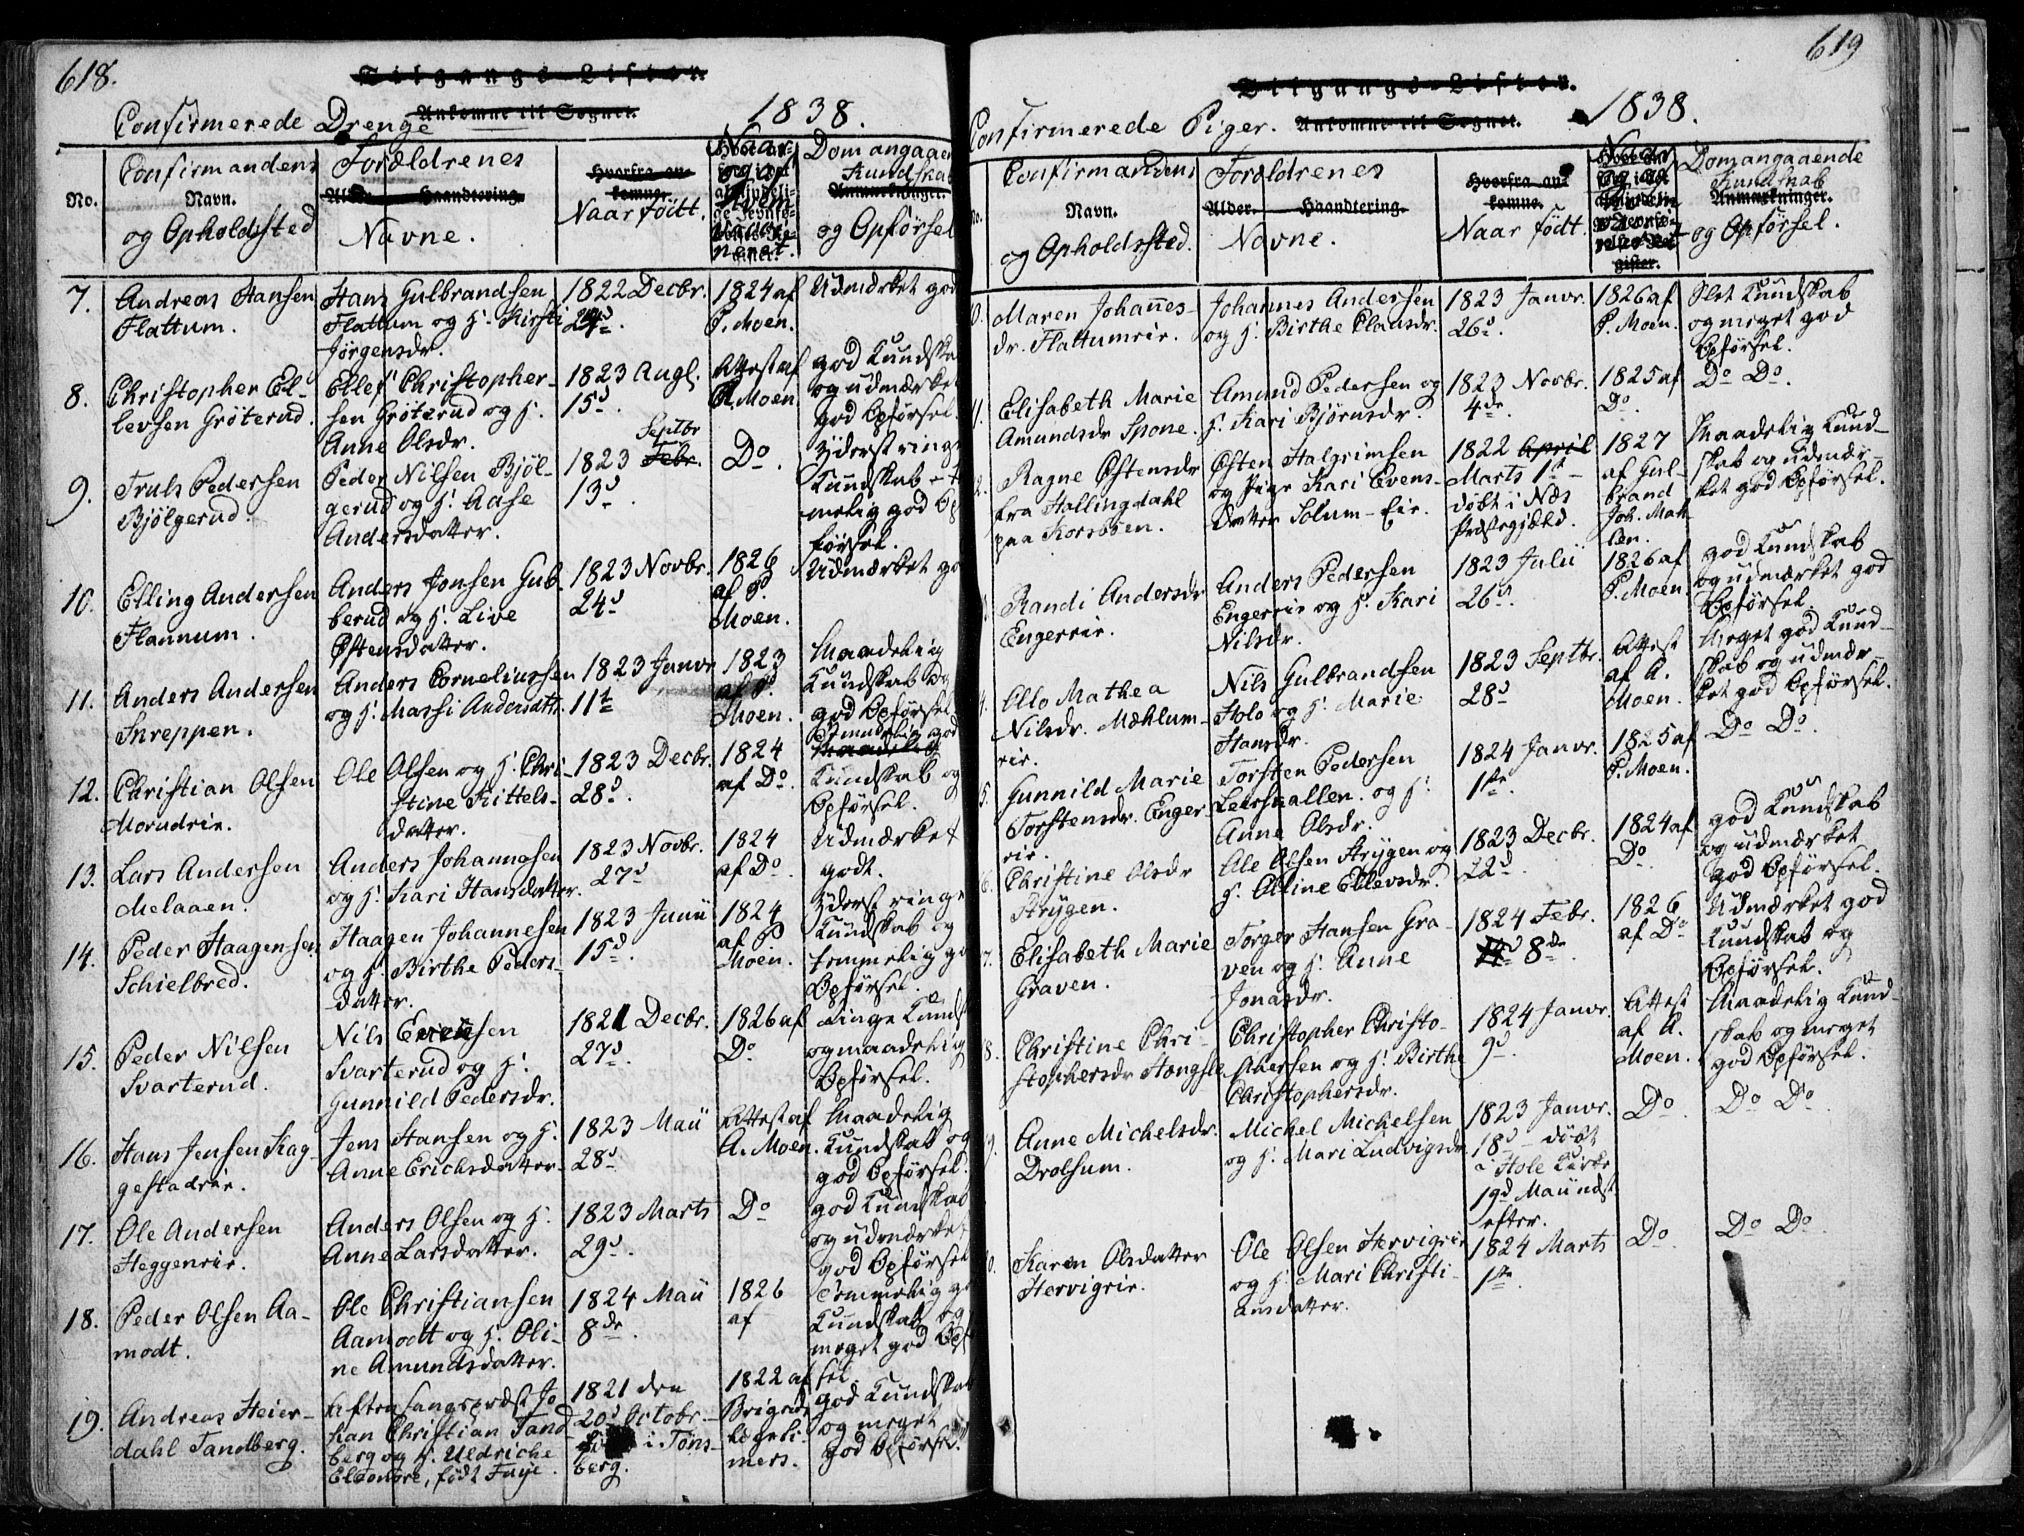 618.
Tilgangs-Listen.
Confirmerede Drenge Ankomne til Sognet. 1838.
No.
Confirmandens
Navn.
og Opholdsted
Forældrenes
Alder. Haandtering.
Navne.
Hvorfra ankomne.
Naar födt.
Naar
og af
hvem
vacci-
neret.
Dom angaaen
Kundskab
Anmærkninger.
og Opførsel
7. Andreas Hansen
Flattum.
Hans Gulbrandsen
Flattum og H. Kirsti
Jørgensdr.
1822 Decbr.
24d.
1824 af
P. Moen.
Udmærket god
8. Christopher El-
levsen Gröterud.
Ellef Christopher-
sen Gröterud og H.
Anne Olsdr.
1823 Augl.
15d.
Attest af
A. Moen
god Kundska
og udmærket
god Opførsel.
9. Truls Pedersen
Bjölgerud.
Peder Nilsen Bjöl-
gerud og H. Aase
Andersdatter.
Septbr
1823 Febr.
13d.
Do.
Yderst ringe
Kundskab - t
melig god Op
førsel.
10. Elling Andersen
Flannum.
Anders Jonsen Gub-
berud og H. Live
Østensdatter.
1823 Novbr.
24d
1826
af P.
Moen.
Udmærket go
11. Anders Andersen
Snreppen.
Anders Corneliussen
og H. Massi Andersdtr.
1823 Janvr
11te
1823
af P.
Moen.
Maadelig
Kundskab og
god Opførsel
12. Christian Olsen
Morudrie.
Ole Olsen og H. Chri-
stine Kittels-
datter.
1823 Decbr.
28d.
1824
af Do.
Temmelig god
Maadelig
Kundskab og
Opførsel.
13. Lars Andersen
Melaaen.
Anders Johannesen
og H. Kari Hansdatter.
1823 Novbr.
27d
1824
af Do.
Udmærket
godt.
14. Peder Haagensen
Schielbred.
Haagen Johannesen
og H. Birthe Peders-
datter.
1823 Junii
15d.
1824
af P
Moen.
Yderst ringe
Kundskab og
temmelig go
Opførsel.
15. Peder Nilsen
Svarterud.
Nils Evensen
Svarterud og H.
Gunnild Pedersdr.
1821 Decbr.
27d.
1826 af
Do
Ringe Kundsk
og maadelig
Opførsel.
16. Hans Jensen Kag-
gestadrie.
Jens Hansen og H.
Anne Erichsdatter.
1823 Maii
28d.
Attest af
A. Moen.
Maadelig
Kundskab og
god Opførsel.
17. Ole Andersen
Heggenrie.
Anders Olsen og H.
Anne Larsdatter.
1823 Marts
29d.
Do
god Kundskab
og udmærket
god Opførsel
18. Peder Olsen Aa-
modt.
Ole Christiansen
Aamodt og H. Oli-
ne Amundsdatter.
1824 Maii
8de.
1826
af
Temmelig go
Kundskab og
meget god Opf
sel.
19. Andreas Heier-
dahl Tandberg.
Aftensangspræst Jo-
han Christian Tand-
berg og H. Uldriche
Eleonore, født Faye.
1821 den
20d Octobr.
i Töns-
berg.
1822 af
Brigade
Lægeli-
mers.
god Kundskab
og meget
god Opførsel.
619
Tilgangs-Listen.
Confirmerede Piger. Ankomne til Sognet. 1838.
No.
Confirmandens
Navn.
og Opholdssted.
Forældrenes
Alder. Haandtering.
Navne.
Hvorfra ankomne.
Naar født.
Naar
Dom angaaende
Kundskab
Anmærkninger.
og Opførsel.
0. Maren Johannes-
dr. Flattumrie.
Johannes Andersen
og H. Birthe Clausdr.
1823 Janvr.
26d.
1826 af
P. Moen.
Slet Kundskab
og meget god
Opførsel.
1. Elisabeth Marie
Amundsdr Spone.
Amund Pedersen og
H. Kari Bjørnsdr.
1823 Novbr.
4de.
1825 af
Do.
Do Do.
2. Ragne Østensdr
fra Hallingdahl
paa Korsöen.
Østen Halgrimsen
og Pige Kari Evens-
datter Solum-Eie.
1822 April
Marts 1ste
döbt i Næs
Præstegjæld.
1827
af Gul-
brand
Joh. Mæh-
len.
Maadelig Kund-
skab og udmær-
ket god Opførsel.
3. Randi Andersdr
Engerrie.
Anders Pedersen
Engerrie og H. Kari
Nilsdr.
1823 Julii
26d.
1826 af
P. Moen.
god Kundskab
og udmærket god
Opførsel.
4. Olo Mathea
Nilsdr. Mæhlum-
rie.
Nils Gulbrandsen
Holo og H. Marie
Hansdr.
1823 Septbr.
28d
Attest
af A.
Moen.
Meget god Kund-
skab og udmær-
ket god Opførsel.
5. Gunnild Marie
Torstensdr. Enger-
rie.
Torsten Pedersen
Leershallen. og H.
Anne Olsdr.
1824 Janvr.
1ste.
1825 af
P. Moen.
Do Do.
6. Christine Olsdr
Strygen.
Ole Olsen Strygen og
H. Olline Ellevsdr.
1823 Decbr.
22d.
1824 af
Do
god Kundskab
og udmærket
god Opførsel.
7. Elisabeth Marie
Graven.
Torger Hansen Gra-
ven og H. Anne
Jonasdr.
1824 Febr.
8de.
1826
af Do
Udmærket god
Kundskab og
Opførsel.
8. Christine Chri-
stophersdr Hongsle
Christopher Christo-
phersen og H. Birthe
Christophersdr.
1824 Janvr.
9d.
Attest
af A.
Moen.
Maadelig Kund-
skab og meget
god Opførsel.
9. Anne Michelsdr.
Drolsum.
Michel Michelsen
og H. Mari Ludvigsdr.
1823 Janvr.
18d - döbt
i Hole Kirke
19d Maii næst
efter.
Do.
Do Do.
0. Karen Olsdatter
Hervigrie.
Ole Olsen Hervigrie
og H. Mari Christi-
ansdatter.
1824 Marts
1ste.
Do.
Do Do.